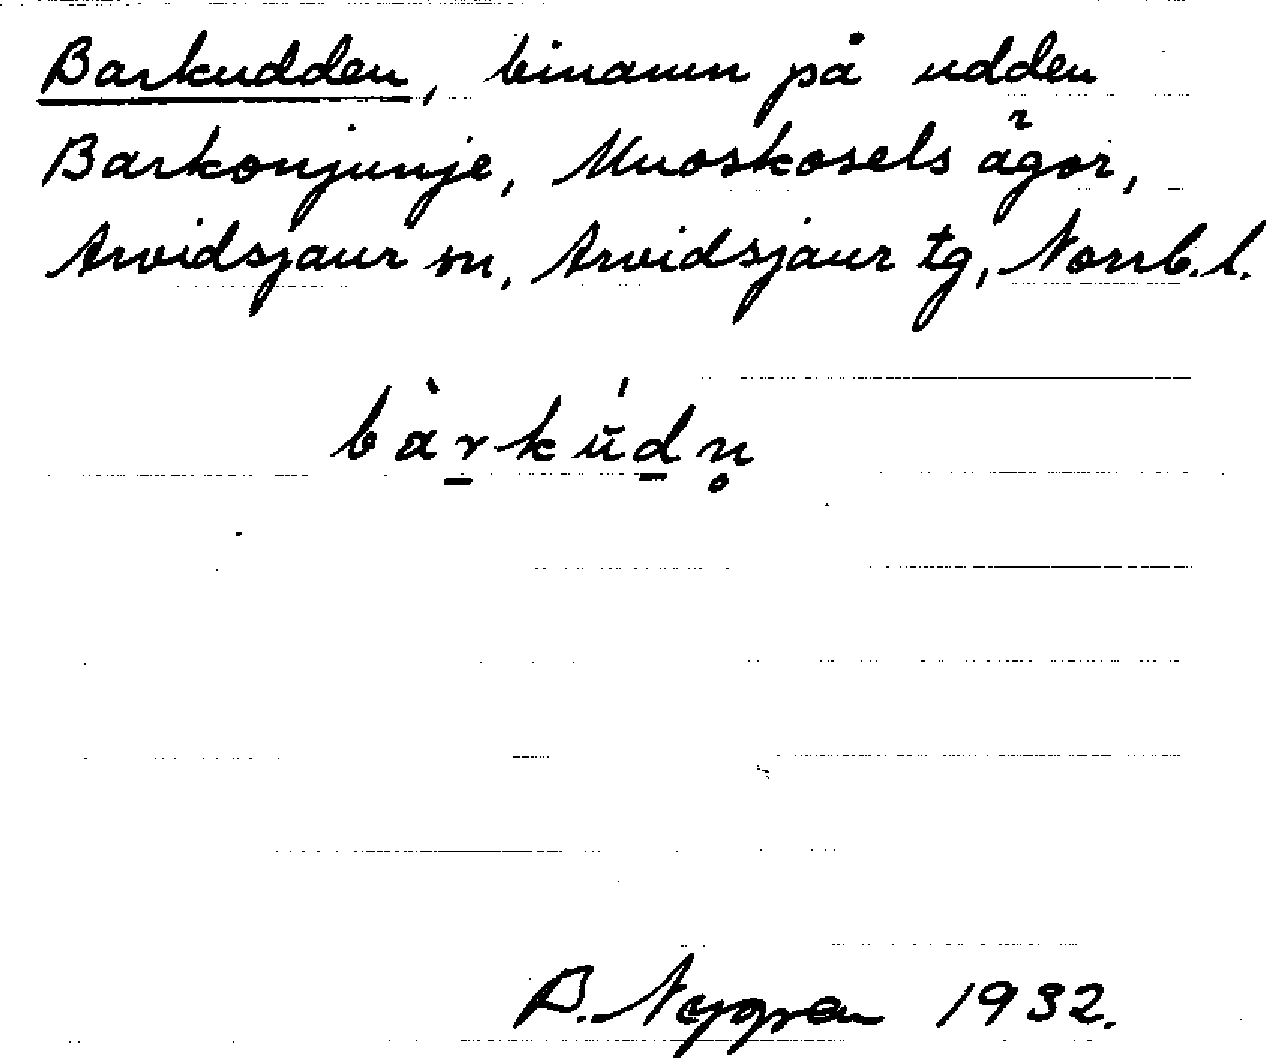 Barkudden, binamn på udden
Barkonjunje, Muoskosels ägor,
Arvidsjaur sn, Arvidsjaur tg, Norrb. l.
bàr̲kŭ́d̲n̥
B. Nygren 1932.